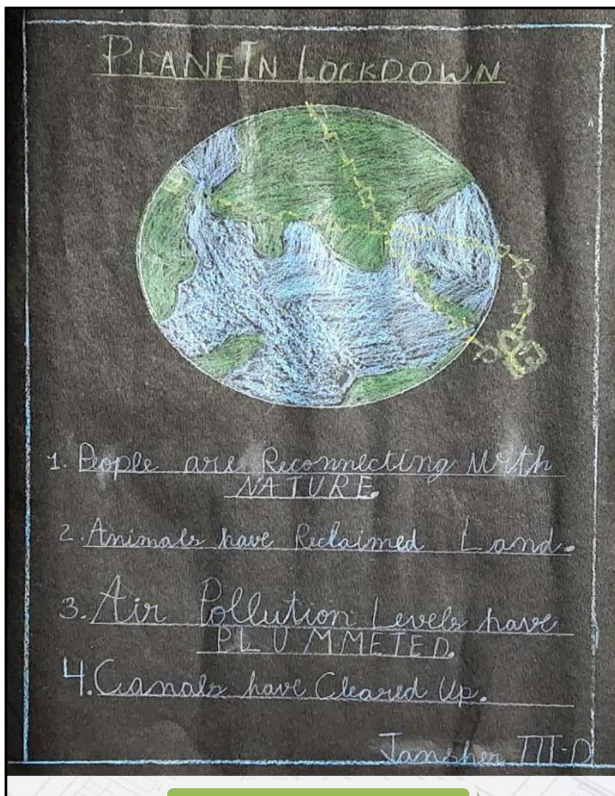 PLANE IN LOCKDOWN
1. People are Reconnecting With
NATURE.
2. Animals have Reclaimed Land.
3. Air Pollution Levels have
PLUMMETED.
4. Canals have Cleared Up.
Jansher III-D